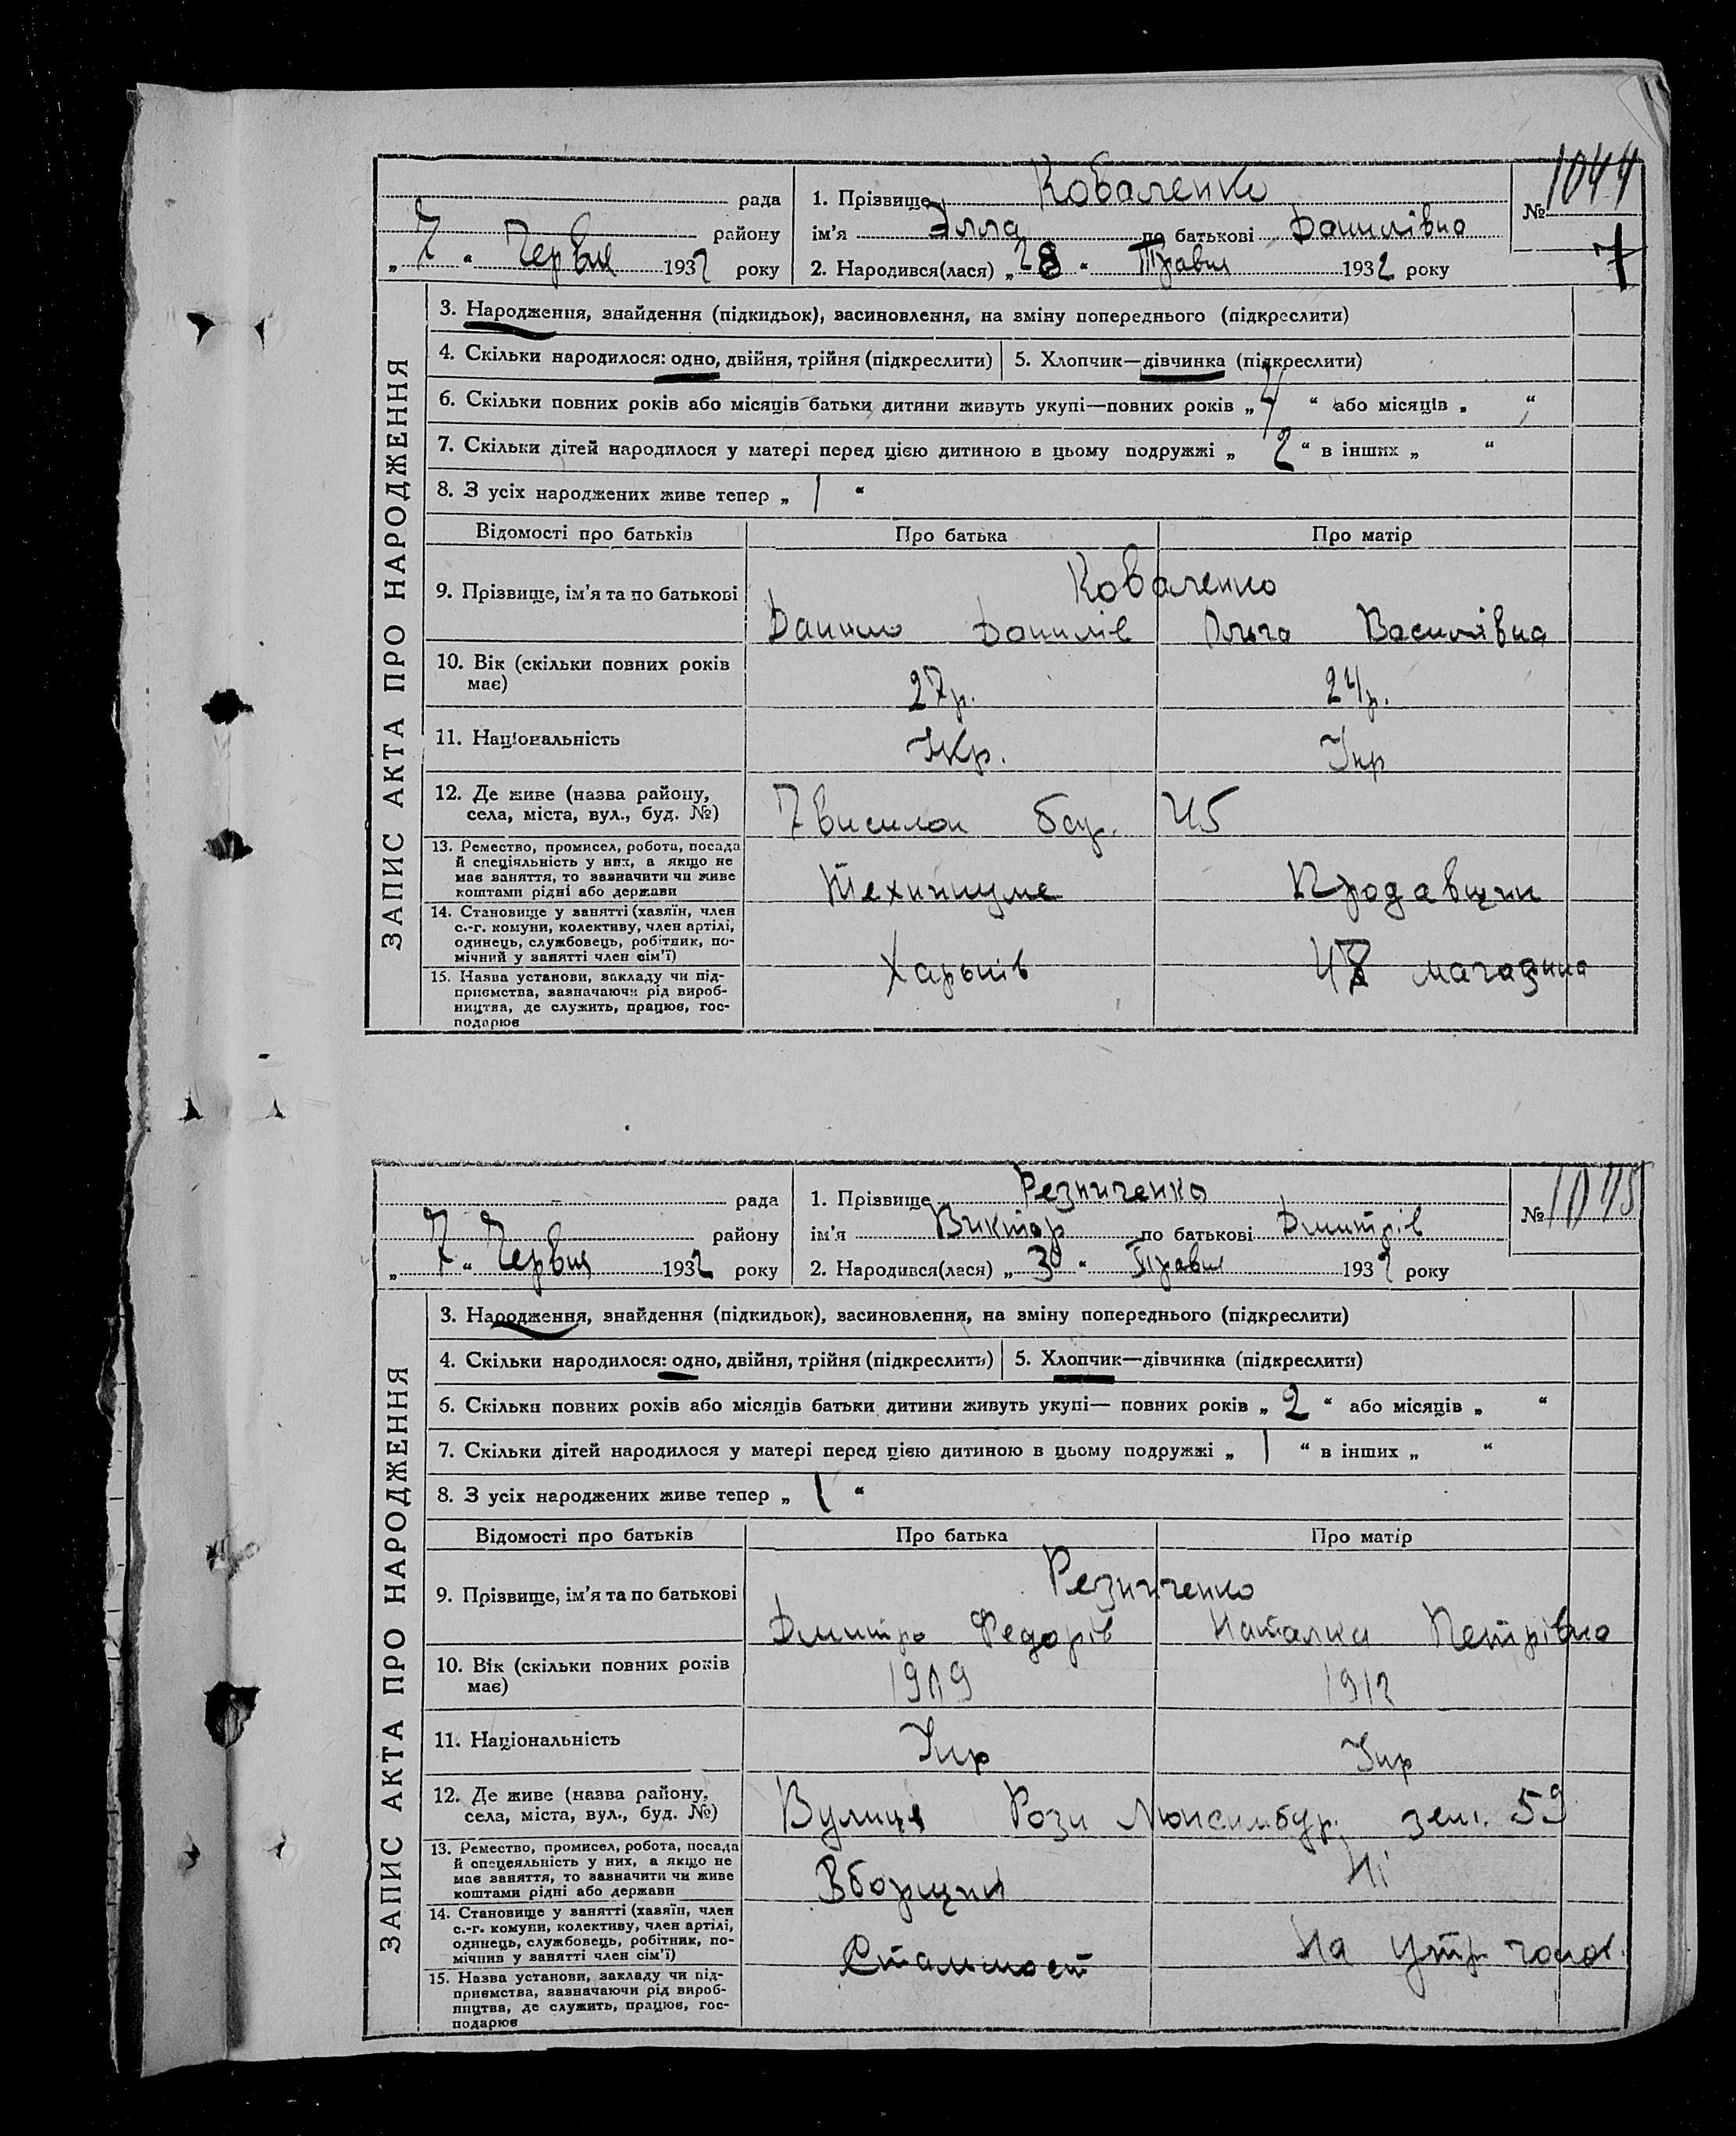 1044
рада
1. Прізвище Коваленко
№
району
ім'я Элла по батькові Данилівна
7
„ 7 “ Червня 1932 року
2. Народився(лася) „ 28 “ Травня 1932 року
ЗАПИС АКТА ПРО НАРОДЖЕННЯ
3. Народження, знайдення (підкидьок), васиновлення, на зміну попереднього (підкреслити)
4. Скільки народилося: одно, двійня, трійня (підкреслити)
5. Хлопчик—дівчинка (підкреслити)
6. Скільки повних років або місяців батьки дитини живуть укупі—повних років „ 4 “ або місяців „ “
7. Скільки дітей народилося у матері перед цією дитиною в цьому подружжі „ 2 “ в інших „ “
8. З усіх народжених живе тепер „ 1 “
Відомості про батьків
Про батька
Про матір
9. Прізвище, ім'я та по батькові
Коваленко
Данило Данилів
Ольга Василівна
10. Вік (скільки повних років
має)
27р.
24р.
11. Національність
Укр.
Укр
12. Де живе (назва району,
села, міста, вул., буд. №)
7 висилок буд. 45
13. Ремество, промисел, робота, посада
й спеціяльність у них, а якщо не
має заняття, то зазначити чи живе
коштами рідні або держави
Технікуме
Продавщик
14. Становище у занятті (хазяїн, член
с.-г. комуни, колективу, член артілі,
одинець, службовець, робітник, по-
мічний у занятті член сім'ї)
Харьків
магазина
15. Назва установи, закладу чи під-
приємства, зазначаючи рід вироб-
ництва, де служить, працює, гос-
подарює
1045
рада
1. Прізвище Резниченко
№
району
ім'я Виктор по батькові Дмитрів
„ 7 “ Червня 1932 року
2. Народився(лася) „ 30 “ Травня 1932 року
ЗАПИС АКТА ПРО НАРОДЖЕННЯ
3. Народження, знайдення (підкидьок), васиновлення, на зміну попереднього (підкреслити)
4. Скільки народилося: одно, двійня, трійня (підкреслити)
5. Хлопчик—дівчинка (підкреслити)
6. Скільки повних років або місяців батьки дитини живуть укупі— повних років „ 2 “ або місяців „ “
7. Скільки дітей народилося у матері перед цією дитиною в цьому подружжі „ 1 “ в інших „ “
8. З усіх народжених живе тепер „ 1 “
Відомості про батьків
Про батька
Про матір
9. Прізвище, ім'я та по батькові
Резниченко
Дмитро Федорів
Наталка Петрівна
10. Вік (скільки повних років
має)
1909
1912
11. Національність
Укр
Укр
12. Де живе (назва району,
села, міста, вул., буд. №)
Вулиця Рози Люксимбур. зем. 59
13. Ремество, промисел, робота, посада
й спецеяльність у них, а якщо не
має заняття, то зазначити чи живе
коштами рідні або держави
Зборщик
Ні
14. Становище у занятті (хазяїн, член
с.-г. комуни, колективу, член артілі,
одинець, службовець, робітник, по-
мічнив у занятті член сім'ї)
Стальмост
на утр. чолов.
15. Назва установи, закладу чи під-
приємства, зазначаючи рід вироб-
ництва, де служить, працює, гос-
подарює